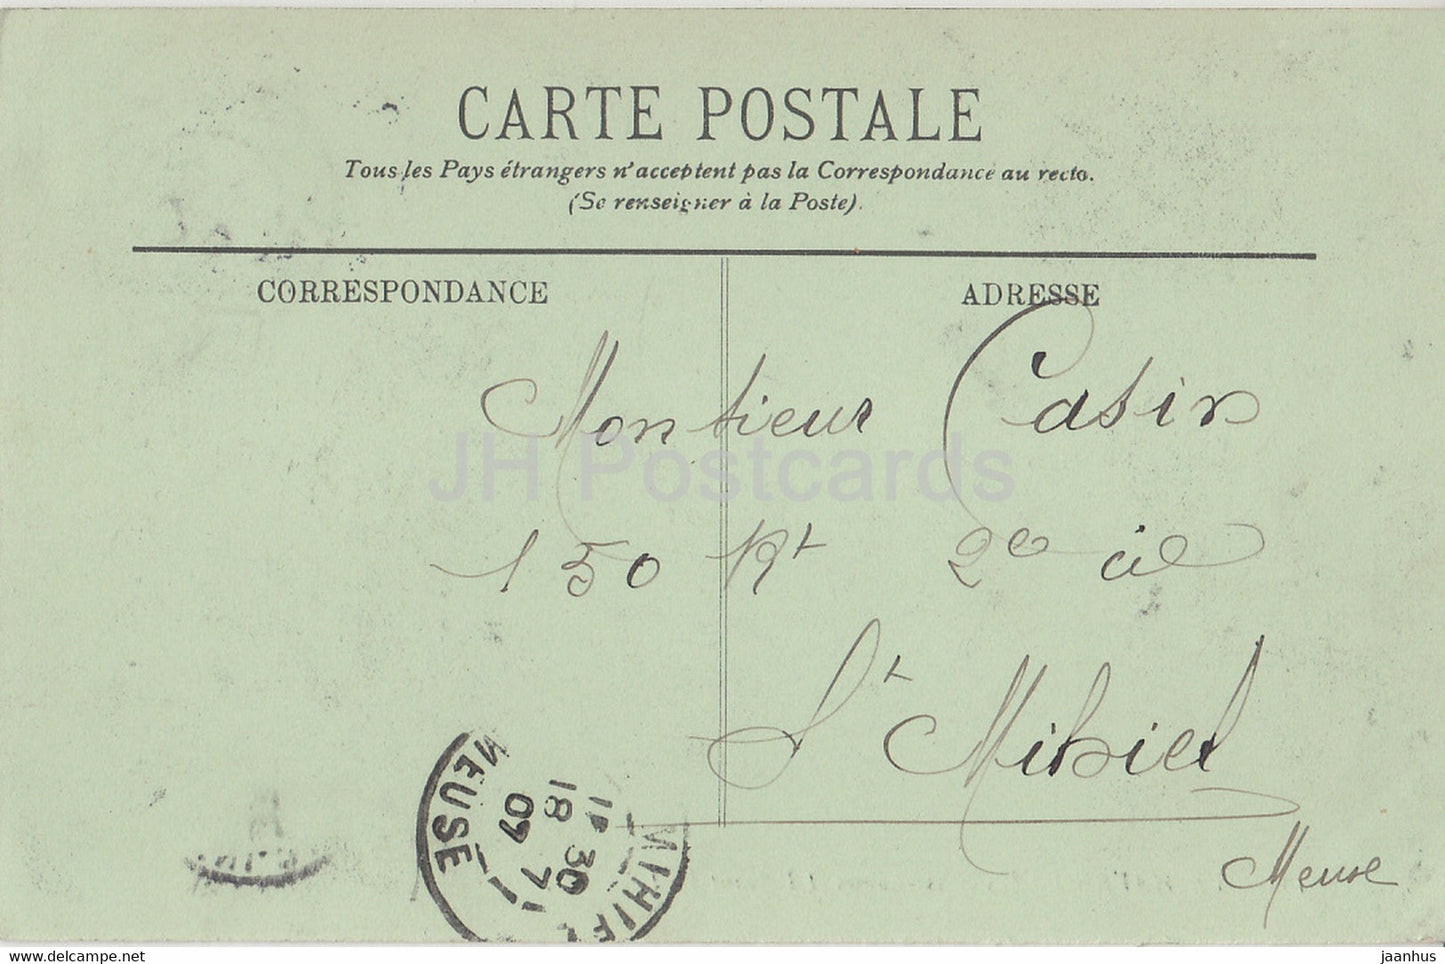 CARTE POSTALE
Tous les Pays étrangers n'acceptent pas la Correspondance au recto.
(Se renseigner à la Poste).
CORRESPONDANCE
ADRESSE
Monsieur Casin
JH Postcards
150 Rt 2e cie
St Mihiel
Meuse
MIHIEL
MEUSE
11 30
18 7
09
hip-me.net
jaanhus